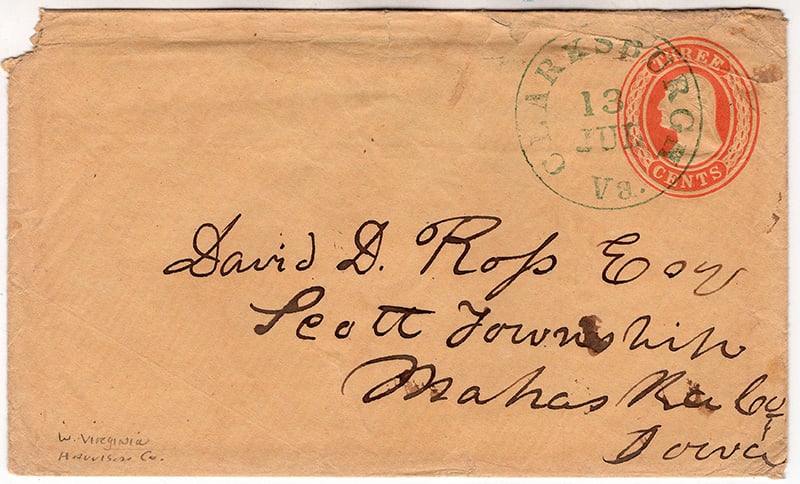 CLARKSBURGH
13
JUL
Va.
THREE
CENTS
David D. Roſs Esq
Scott Township
Mahaska Co
Iowa
W. Virginia
Harrison Co.